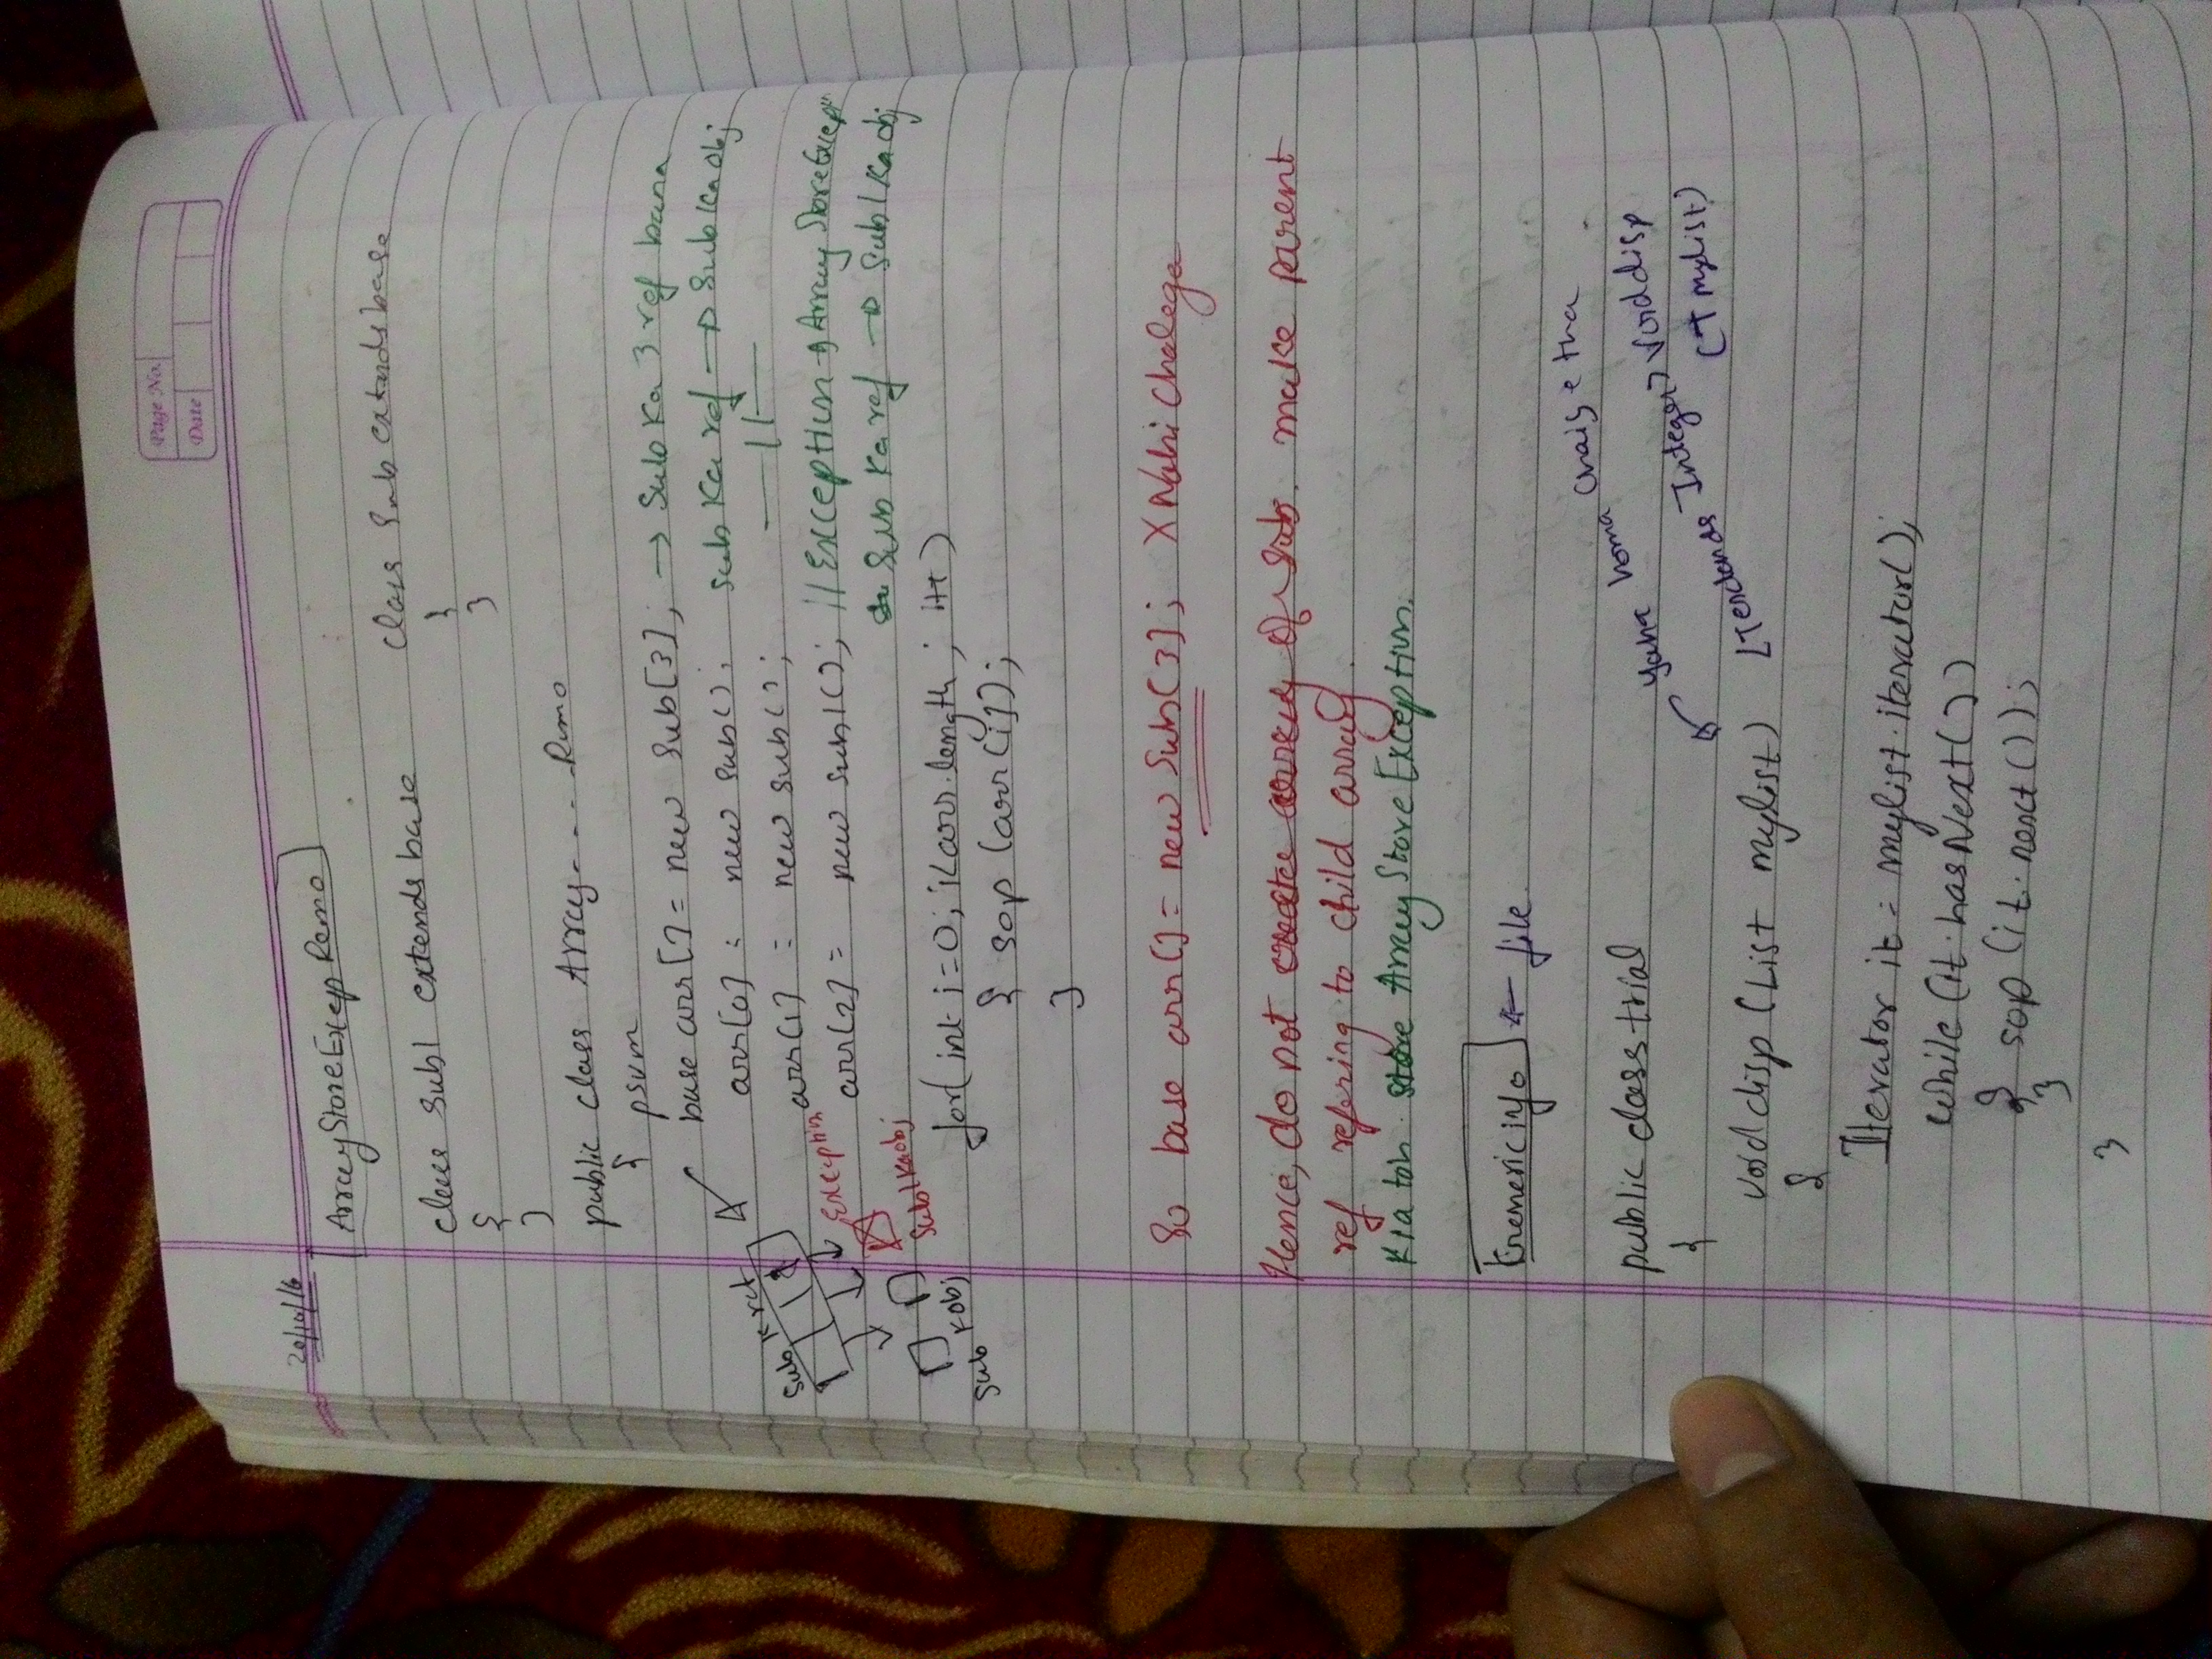 Page No.
Date
20/10/16
ArrayStoreExcepDemo
class sub1 extends base    class Sub extends base
{    }
}    }
public class Array- - - - Demo
{ psvm
base arr[] = new Sub[3]; → Sub Ka 3 ref bana
arr[0] = new sub(); sub Ka ref → Sub Ka Obj
arr[1] = new sub(); — 11 —
arr[2] = new sub1(); // Exception → ArrayStoreExcep
Sub Ka ref → Sub1 Ka obj
Sub K ref
Exception
Sub1 Ka obj
Sub K Obj
for(int i=0; i<arr.length; i++)
{ sop (arr[i]);
}
So base arr[] = new Sub[3]; X Nahi Chalega
Hence, do not create array of Sub. make parent
ref refering to child array.
Kia toh store ArrayStoreException.
Generic info ← file.
public class trial
{
yaha hona chaige tha
<T extends Integer> void disp
(T mylist)
void disp (List mylist)
{
Iterator it = mylist.iterator();
while (it.hasNext())
{ sop (it.next());
}
}